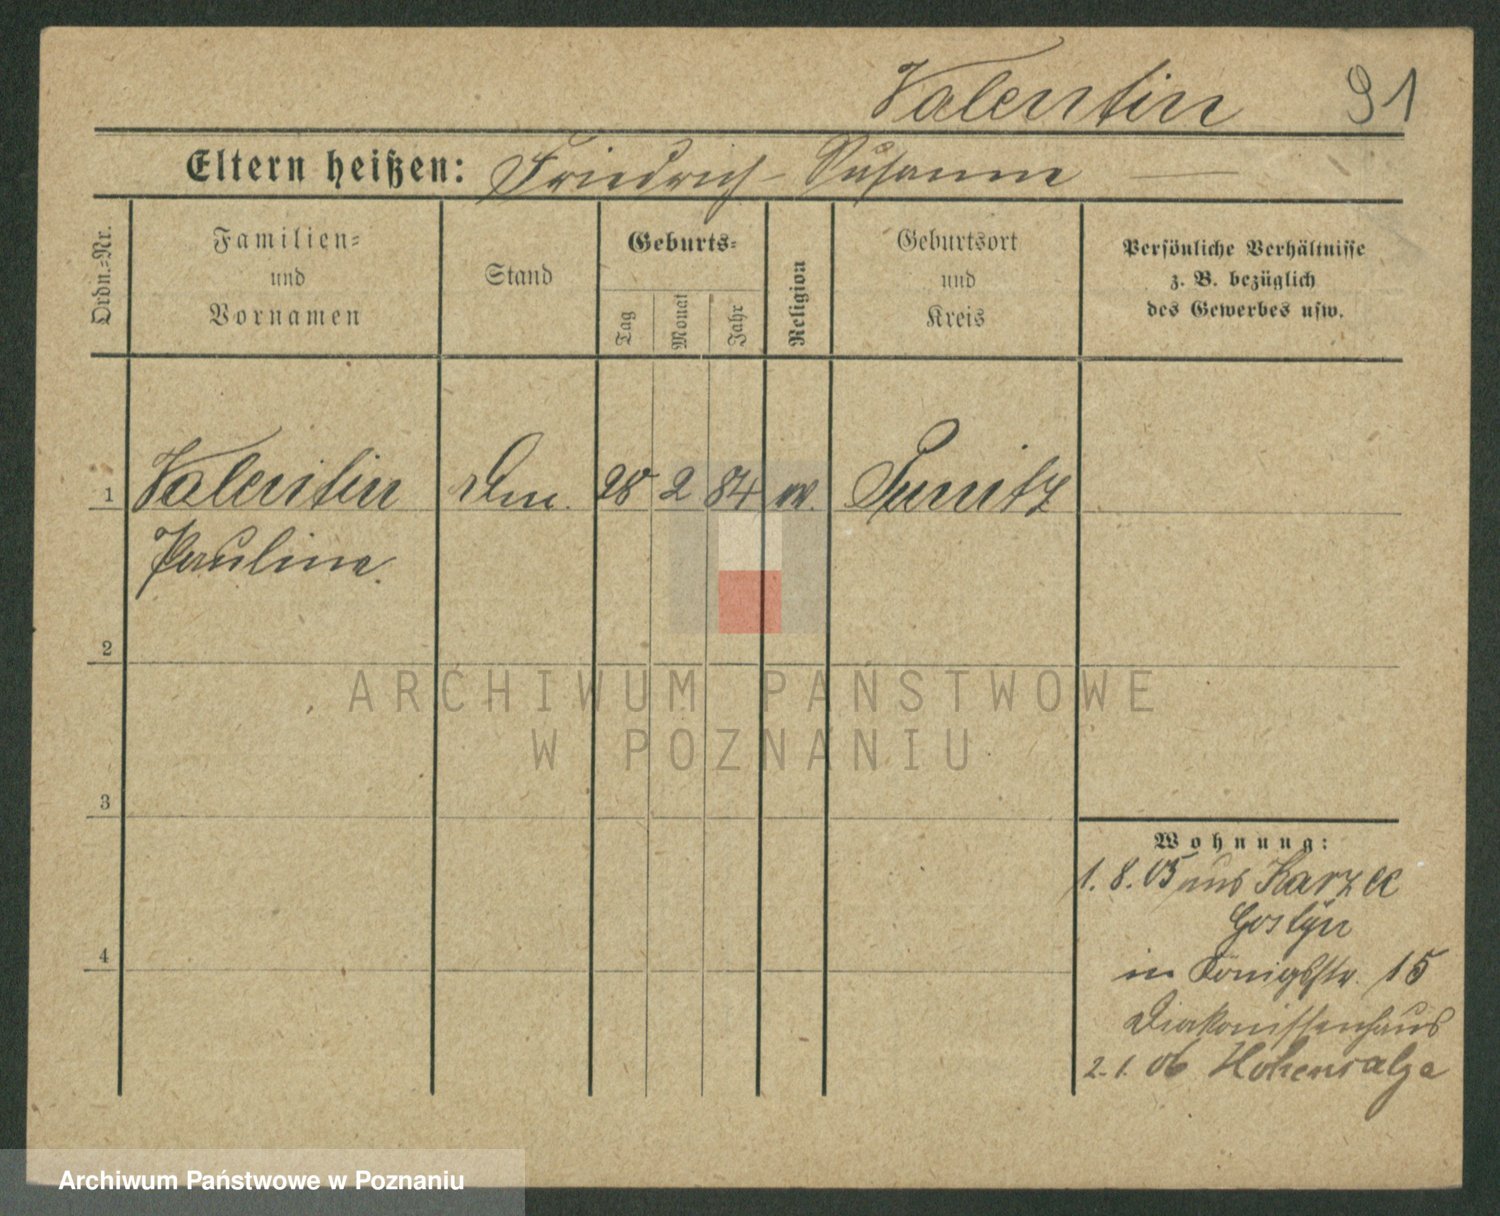 Valentin 91
Eltern heißen: Friedrich - Susanne
Ordn.=Nr.
Familien=
und
Vornamen
Stand
Geburts=
Tag
Monat
Jahr
Religion
Geburtsort
und
Kreis
Persönliche Verhältnisse
z. B. bezüglich
des Gewerbes usw.
1 Valentin 28 2 84 Punitz
Pauline.
2
3
4
Wohnung:
1. 8. 05 aus Karzec
Gostyn
in Königsstr. 15
Diakonissenhaus
2. 1. 06 Hohensalza
ARCHIWUM PAŃSTWOWE
W POZNANIU
Archiwum Państwowe w Poznaniu